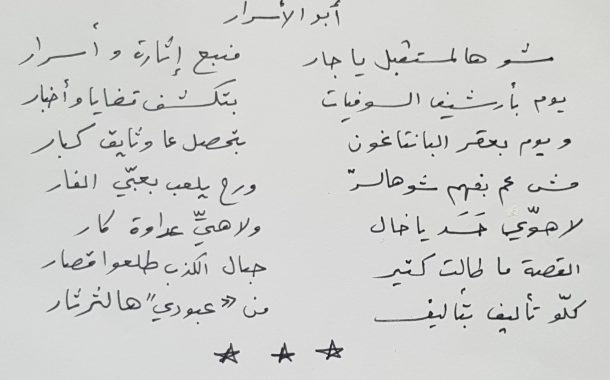 أبو الأسرار
شو هالمستقبل يا جار منبع إثارة و أسرار
يوم بأرشيف السوفيات بتكشف قضايا وأخبار
ويوم بعقر البانتاغون بتحصل عا وثايق كبار
مش عم بفهم شو هالسرّ ورح يلعب بعبّي الفار
لا هوّي حَسَد يا خال ولا هيِّ عداوة كار
القصة ما طالت كتير حبال الكذب طلعوا قصار
كلّو تأليف بتأليف من «عبودي» هالثرثار